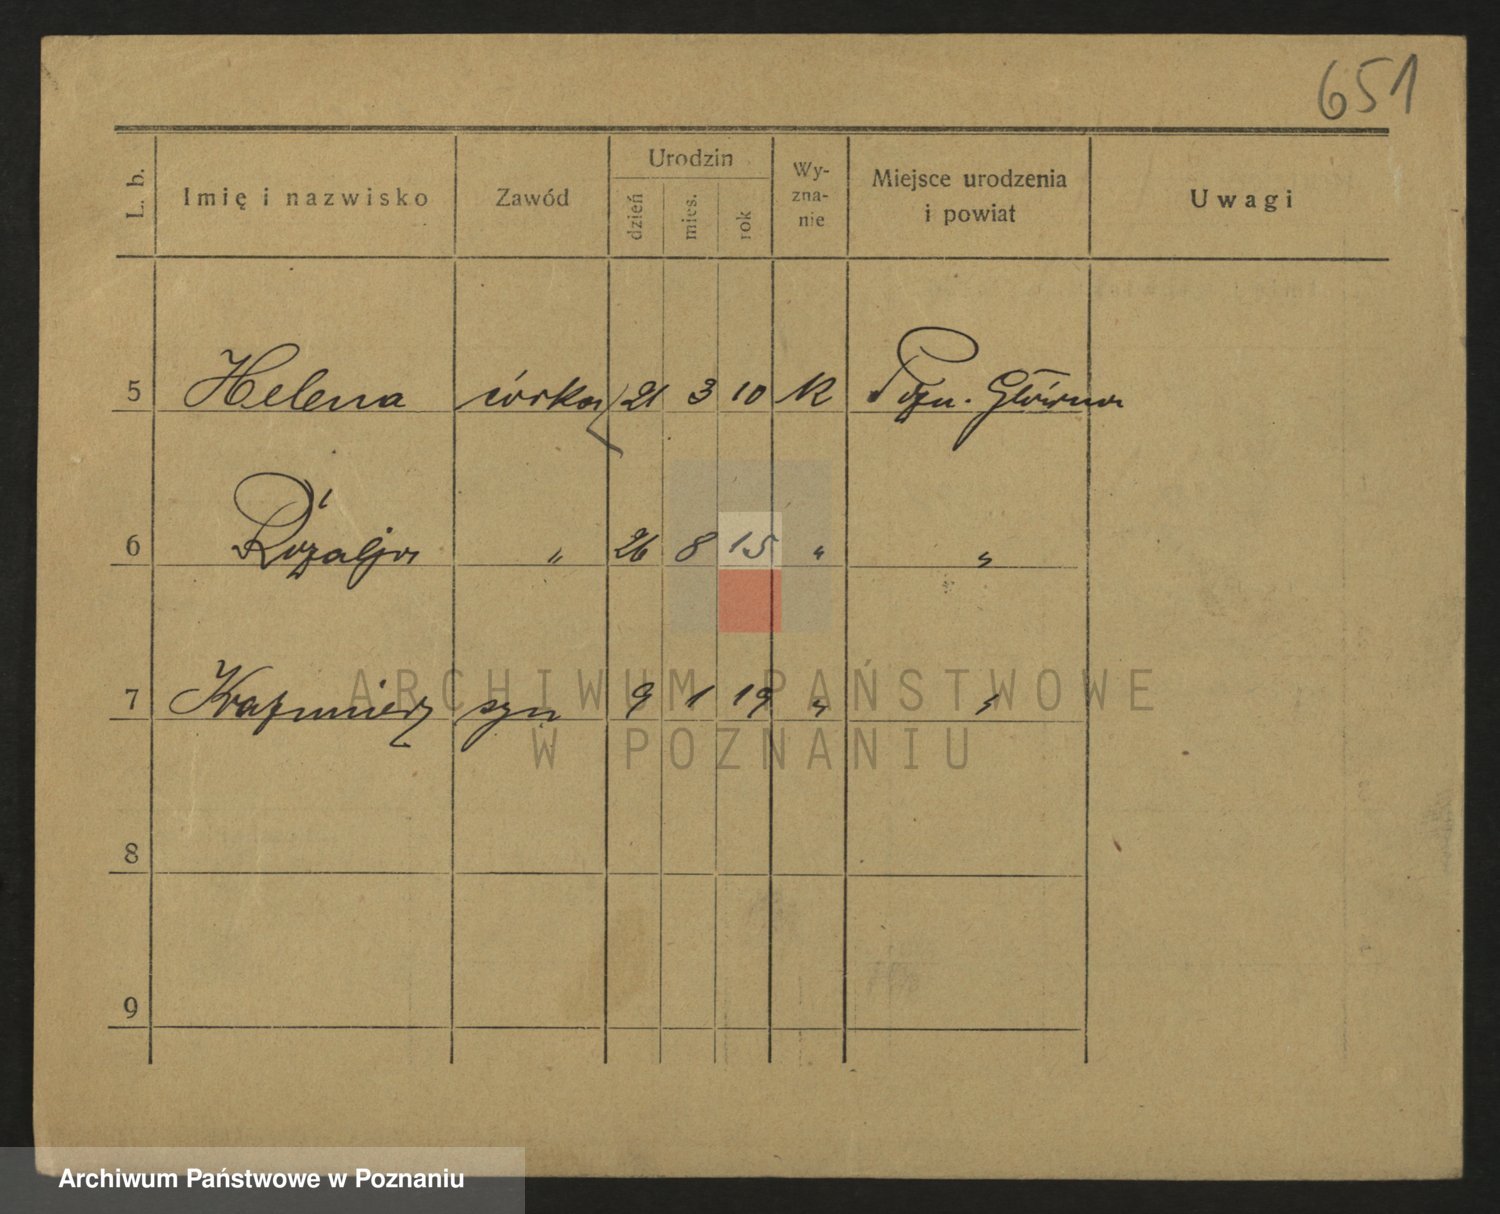 651
L. b. Imię i nazwisko Zawód Urodzin dzień mies. rok Wy-zna-nie Miejsce urodzenia i powiat Uwagi
5 Helena córka 21 3 10 k Pozn. Główna
6 Rozalja " 26 8 15 " "
7 Kazimierz syn 9 1 19 " "
8
9
ARCHIWUM PAŃSTWOWE
W POZNANIU
Archiwum Państwowe w Poznaniu